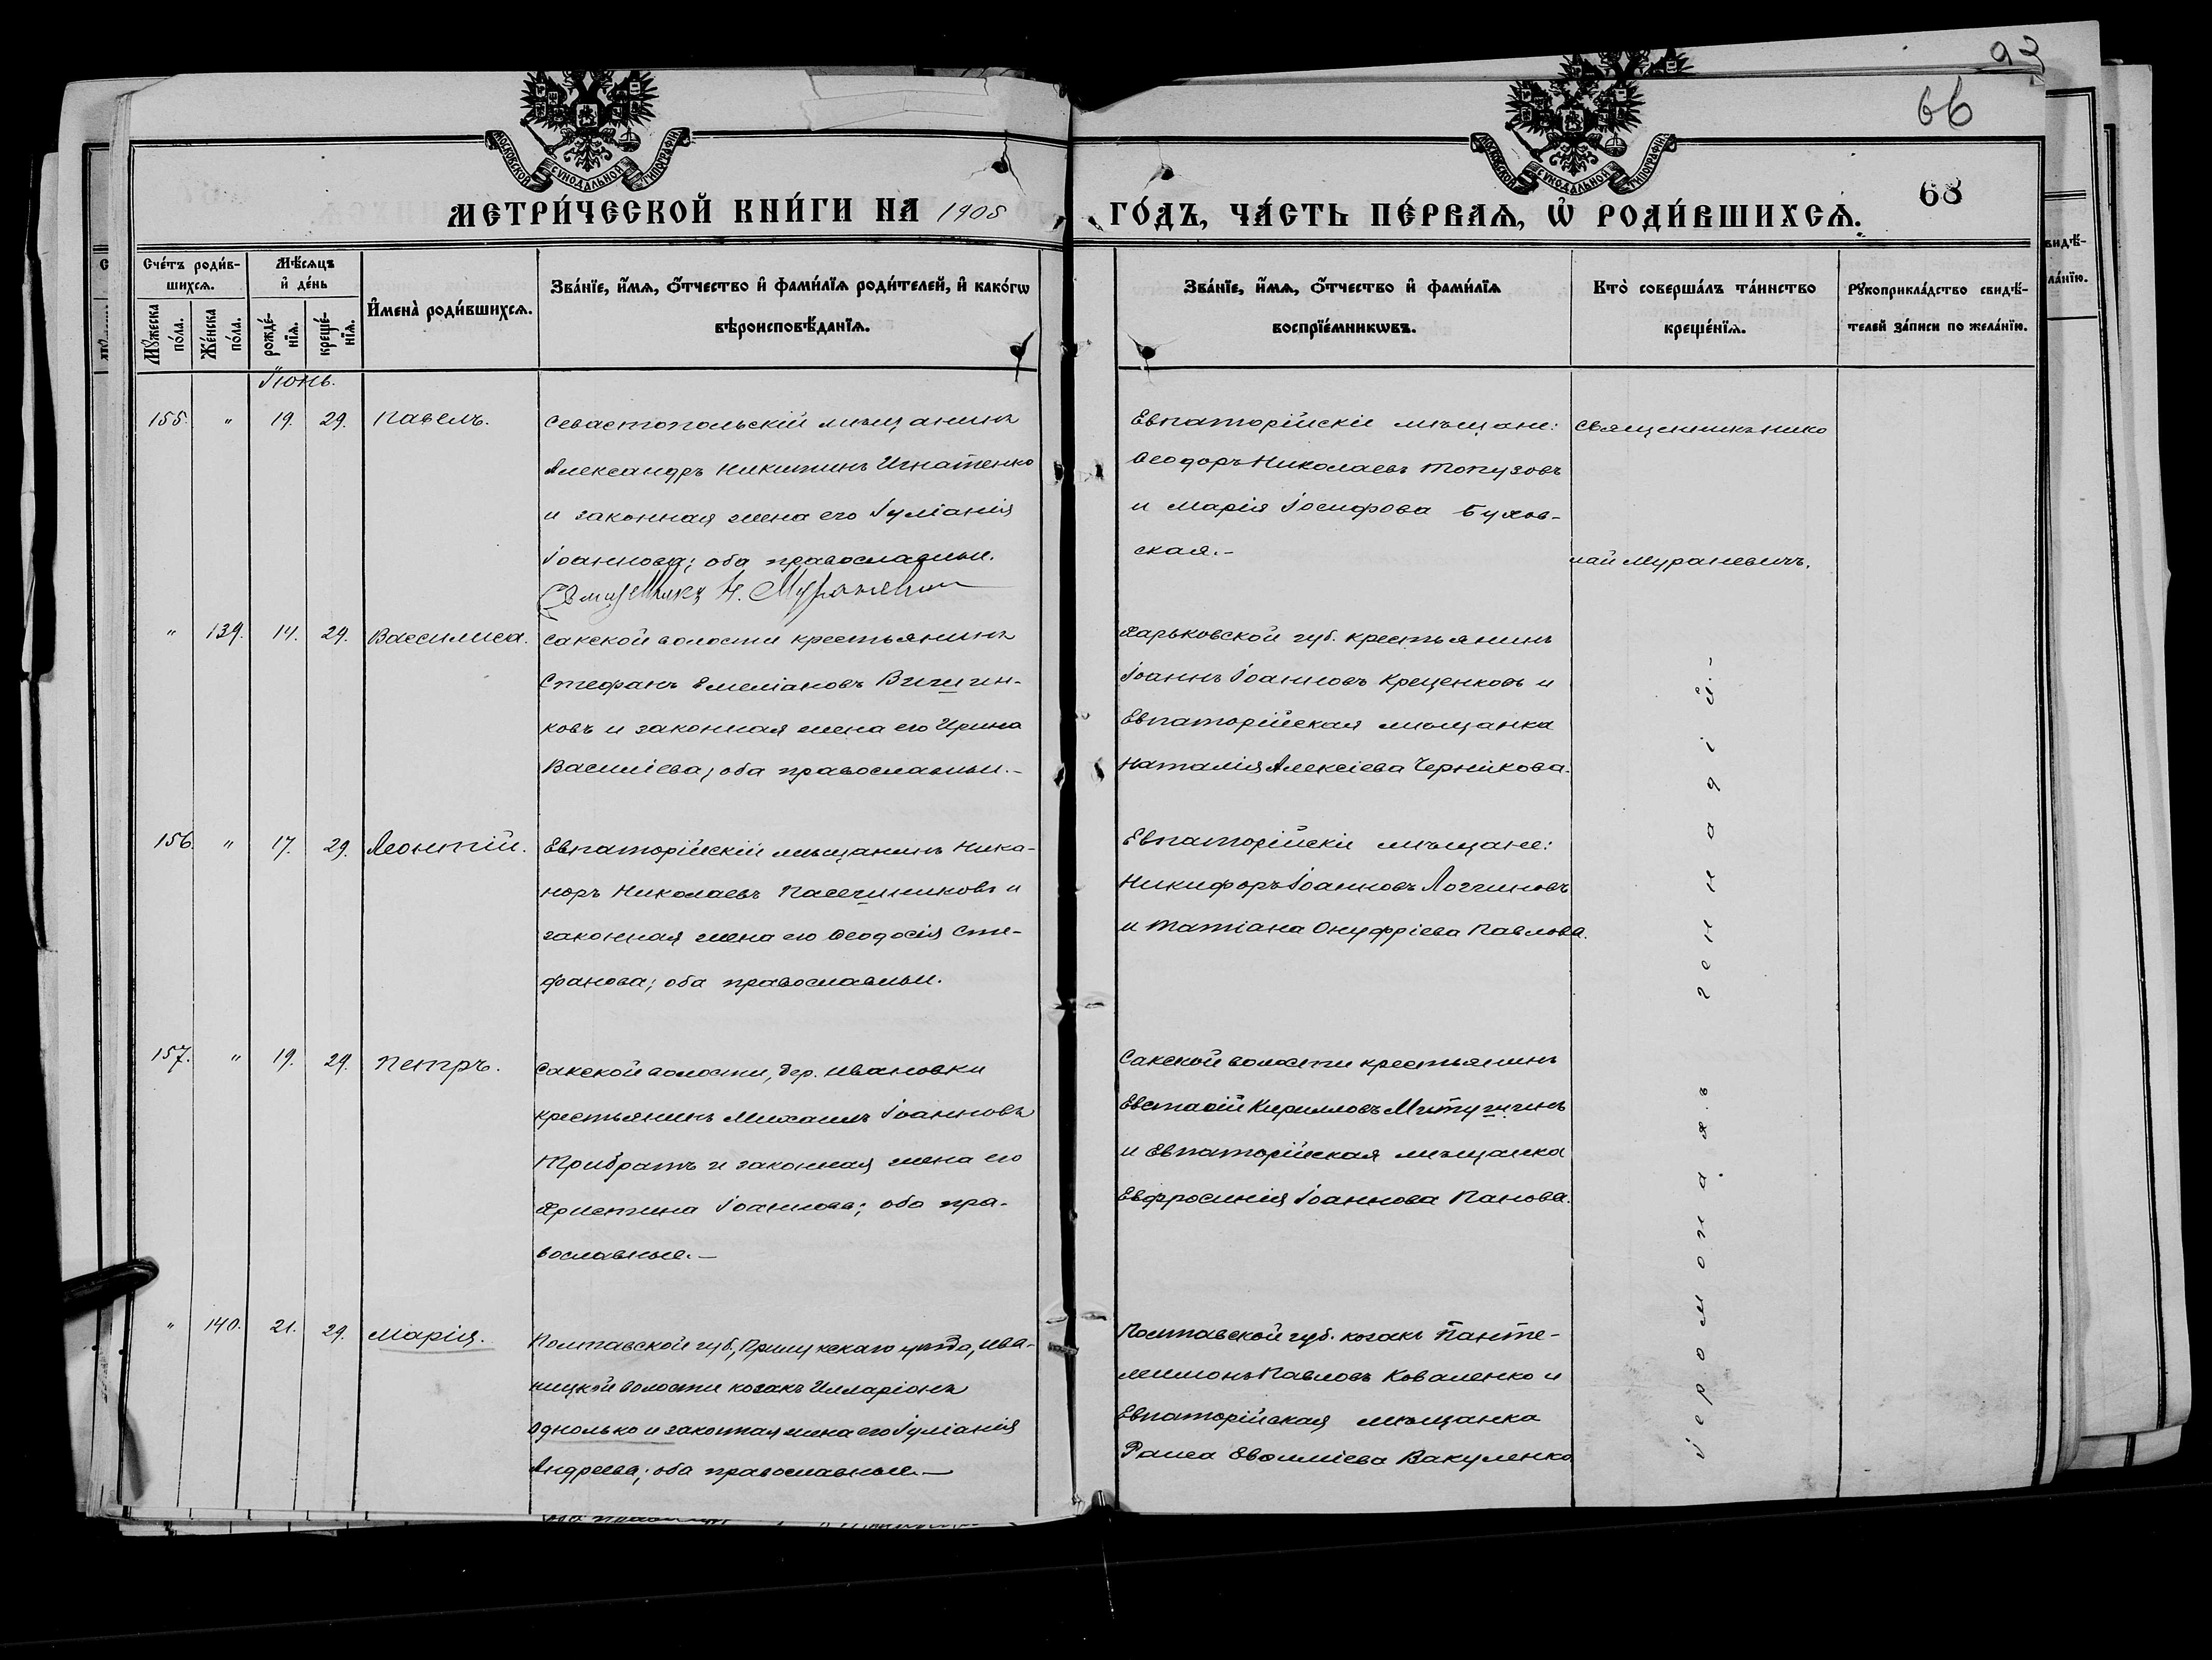 93
66
68
МОСКОВСКОЙ СУНОДАЛЬНОЙ ТИПОГРАФІИ
МОСКОВСКОЙ СУНОДАЛЬНОЙ ТИПОГРАФІИ
МЕТРИ́ЧЕСКОЙ КНИ́ГИ НА 1905 ГО́ДЪ, ЧА́СТЬ ПЕ́РВАѦ, Ѽ РОДИ́ВШИХСѦ.
Сче́тъ роди́в-
шихсѧ.
Мꙋжеска по́ла.
Же́нска по́ла.
Мѣ́сѧцъ
и҆ де́нь
рожде́-
нїѧ.
креще́-
нїѧ.
И҆мена̀ роди́вшихсѧ.
Зва́нїе, и҆́мѧ, ѻ҆́тчество и҆ фами́лїѧ роди́телей, и҆ како́гѡ
вѣроисповѣ́данїѧ.
Зва́нїе, и҆́мѧ, ѻ҆́тчество и҆ фами́лїѧ
воспрїе́мникѡвъ.
Кто̀ соверша́лъ та́инство
креще́нїѧ.
Рꙋкоприкла́дство свидѣ́-
телей за́писи по жела́нїю.
Іюнь.
155. " 19. 29. Павелъ.
Севастопольскій мѣщанинъ
Александръ Никитинъ Игнатенко
и законная жена его Іуліанія
Іоаннова; оба православные.
Священникъ Н. Мураневичъ
Евпаторійскіе мѣщане:
Ѳеодоръ Николаевъ Топузовъ
и Марія Іосифова Бухов-
ская.-
Священникъ Нико
лай Мураневичъ.
" 139. 14. 29. Василиса.
Сакской волости крестьянинъ
Стефанъ Емеліановъ Вичин-
ковъ и законная жена его Ирина
Василіева; оба православные.-
Харьковской губ. крестьянинъ
Іоаннъ Іоанновъ Креценковъ и
Евпаторійская мѣщанка
Наталія Алексіева Черникова.
156. " 17. 29. Леонтій.
Евпаторійскій мѣщанинъ Ника-
норъ Николаевъ Пасечниковъ и
законная жена его Ѳеодосія Сте-
фанова; оба православные.
Евпаторійскіе мѣщане:
Никифоръ Іоанновъ Логгиновъ
и Татіана Онуфріева Павлова.
157. " 19. 29. Петръ.
Сакской волости, дер. Ивановки
крестьянинъ Михаилъ Іоанновъ
Трибратъ и законная жена его
Христина Іоаннова; оба пра-
вославные.-
Сакской волости крестьянинъ
Евстаѳій Кирилловъ
и Евпаторійская мѣщанка
Евфросинія Іоаннова Панова.
" 140. 21. 29. Марія.
Полтавской губ., Прилукскаго уѣзда, Ива-
ницкой волости козакъ Илларіонъ
Однолько и законная жена его Іуліанія
Андреева; оба православные.-
Полтавской губ. козакъ Панте-
леимонъ Павловъ Коваленко и
Евпаторійская мѣщанка
Раиса Евѳиміева Вакуленко
Іеромонахъ Геннадій.-